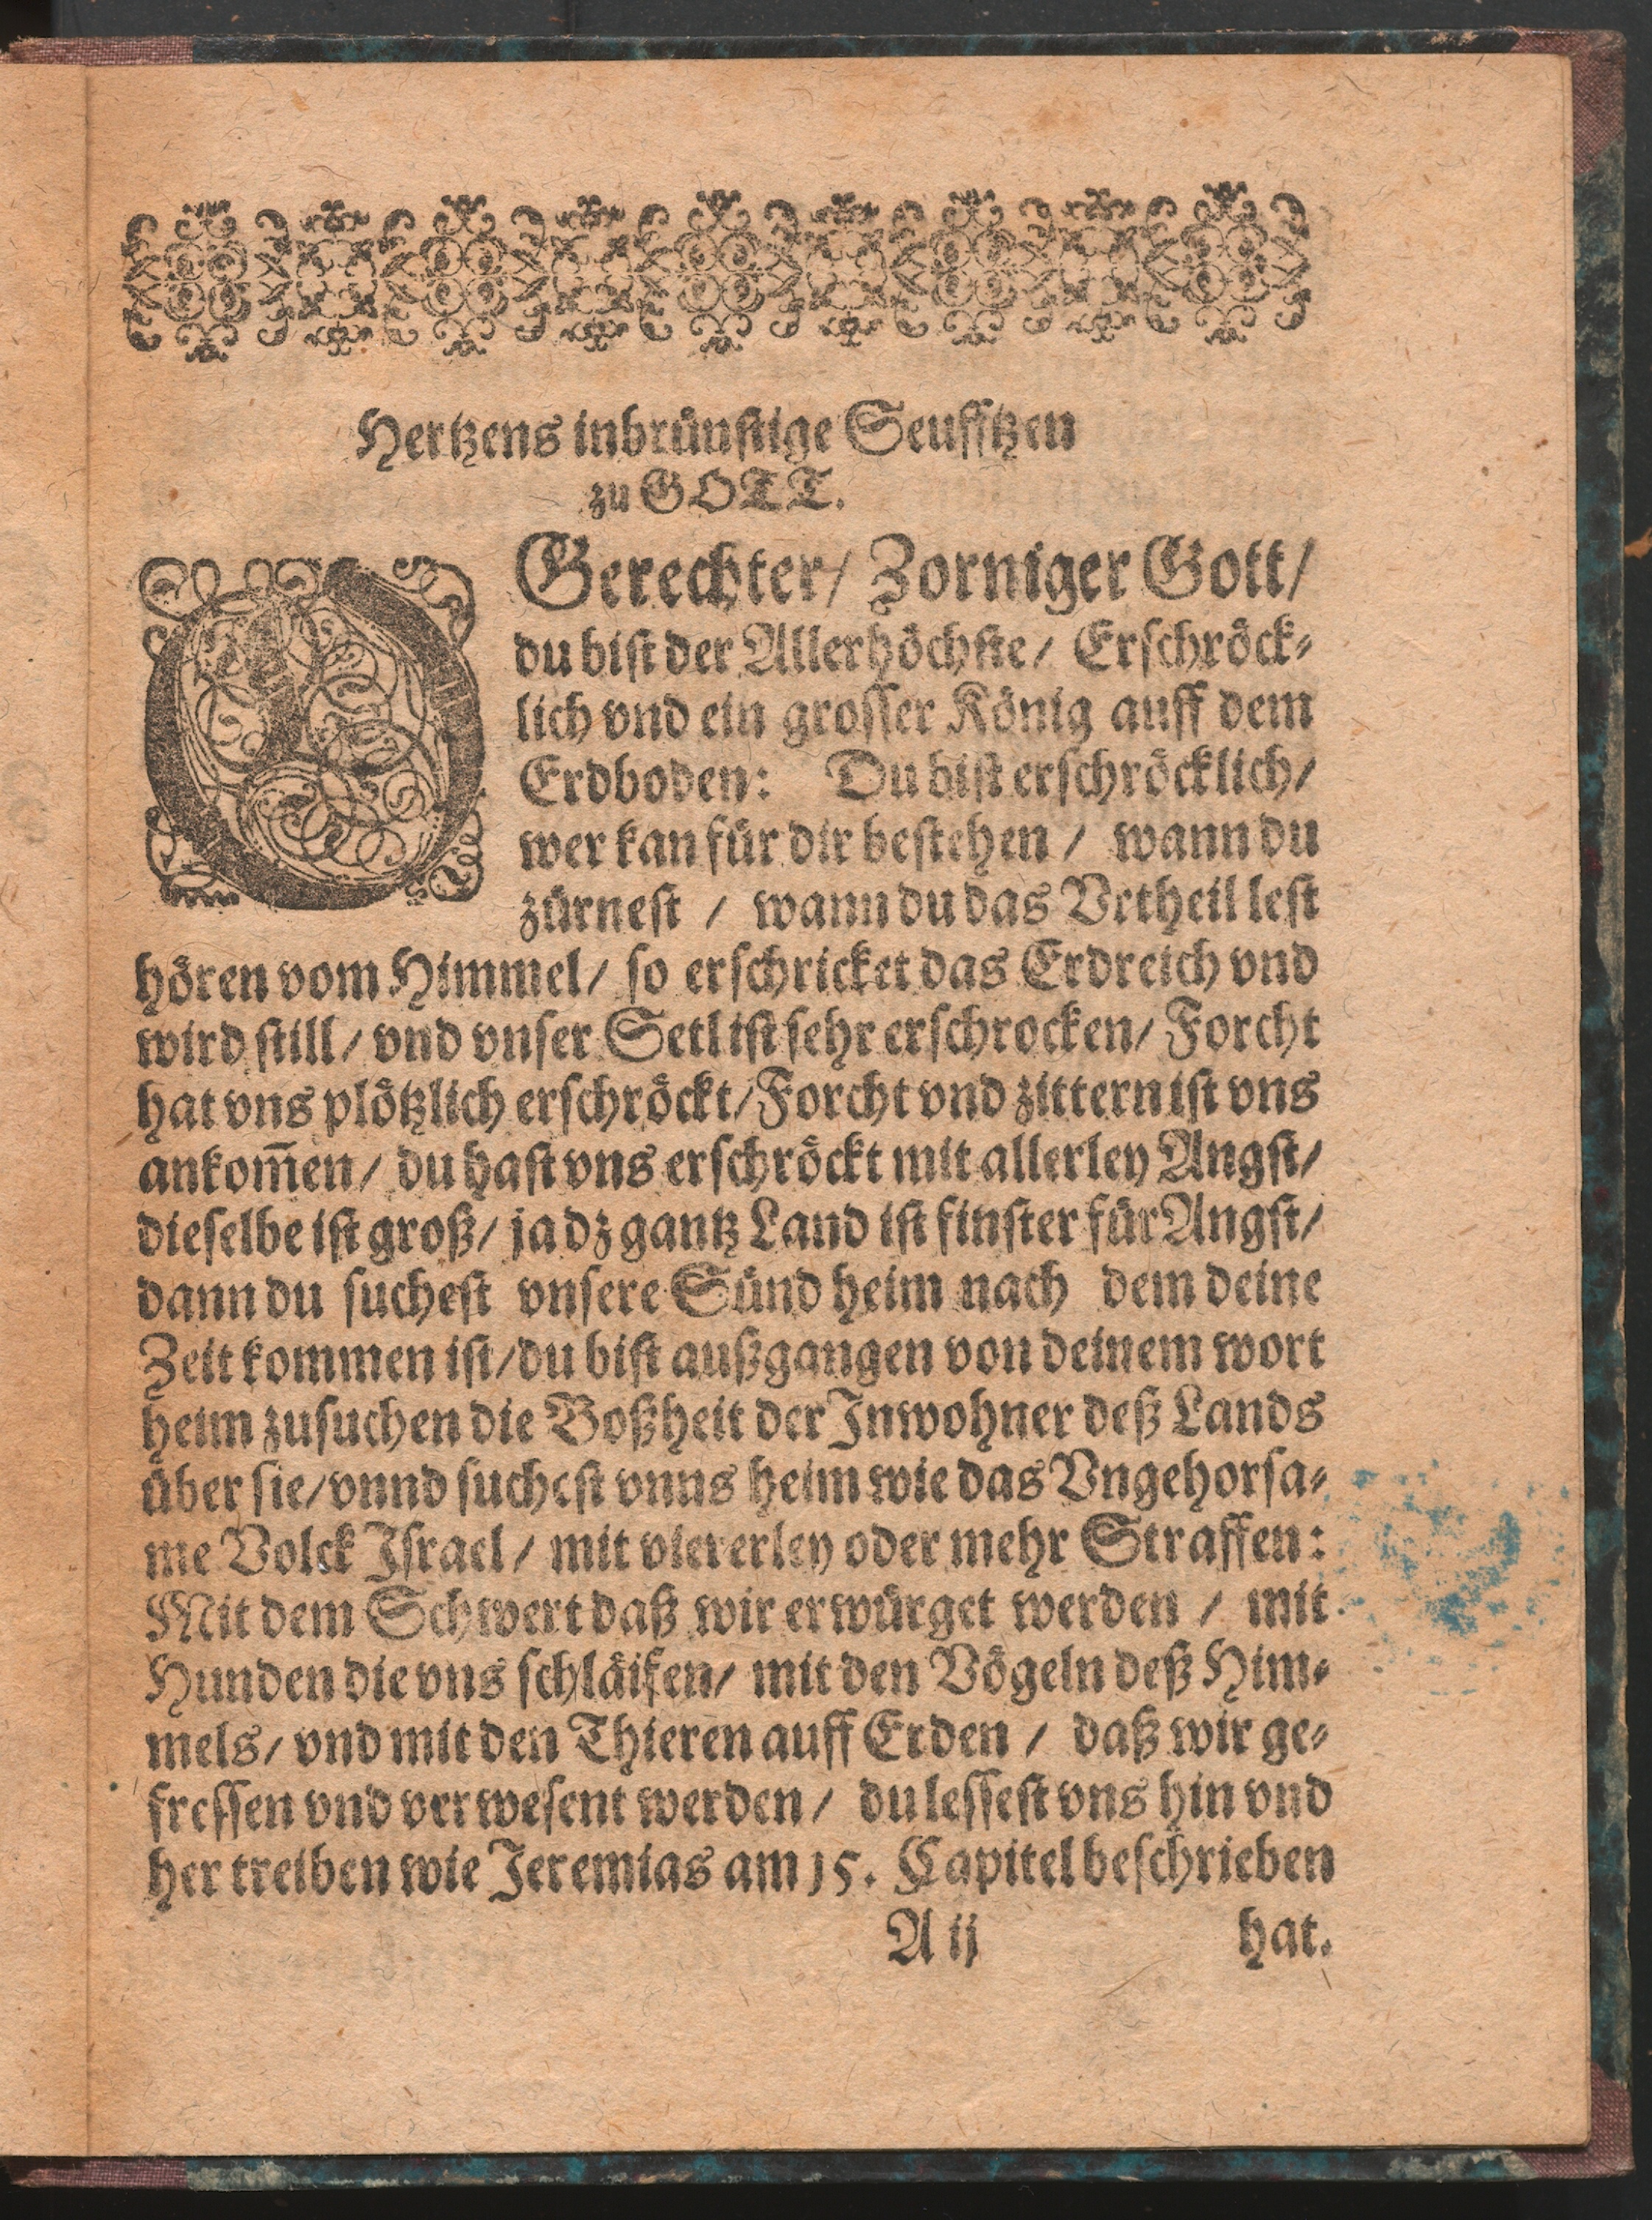 Hertzens inbrünstige Seufftzen
zu GOTT.
O Gerechter/ Zorniger Gott/
du bist der Allerhöchste/ Erschröck-
lich vnd ein grosser König auff dem
Erdboden: Du bist erschröcklich/
wer kan für dir bestehen / wann du
zürnest / wann du das Vrtheil lest
hören vom Himmel/ so erschricket das Erdreich vnd
wird still/ vnd vnser Seel ist sehr erschrocken/ Forcht
hat vns plötzlich erschröckt/ Forcht vnd zittern ist vns
ankom̃en/ du hast vns erschröckt mit allerley Angst/
dieselbe ist groß/ ja dz gantz Land ist finster für Angst/
dann du suchest vnsere Sünd heim nach dem deine
Zeit kommen ist/ du bist außgangen von deinem wort
heim zusuchen die Boßheit der Inwohner deß Lands
über sie/ vnnd suchest vnns heim wie das Vngehorsa-
me Volck Israel/ mit viererley oder mehr Straffen:
Mit dem Schwert daß wir erwürget werden / mit
Hunden die vns schläifen/ mit den Vögeln deß Him-
mels/ vnd mit den Thieren auff Erden / daß wir ge-
fressen vnd verwesent werden/ du lessest vns hin vnd
her treiben wie Jeremias am 15. Capitel beschrieben
A ij hat.